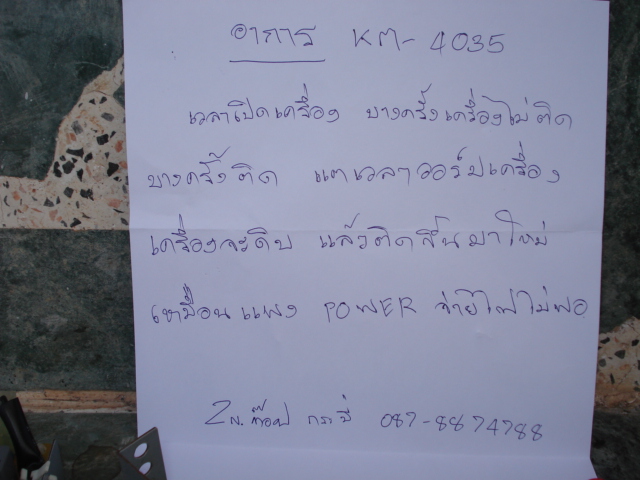 อาการ KM-4035
เวลาเปิดเครื่อง บางครั้งเครื่องไม่ติด
บางครั้งติด แตเวลาออร์ปเครื่อง
เครื่องจะดับ แล้วติดขึ้นมาใหม่
เหมือนแผง POWER จ่ายไฟไม่พอ
ก๊อป กระบี่ 087-8874788